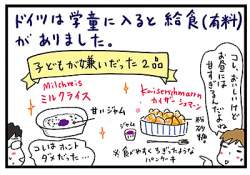 ドイツは学童に入ると給食(有料)
がありました。
子どもが嫌いだった2品
Milchreis
ミルクライス
甘いジャム
Kaiserschmarrn
カイザーシュマーン
粉砂糖
ジャム
※食べやすくちぎったような
パンケーキ
コレ、おいしいけど
お昼には
甘すぎるんだよね
コレはホント
ダメだった…